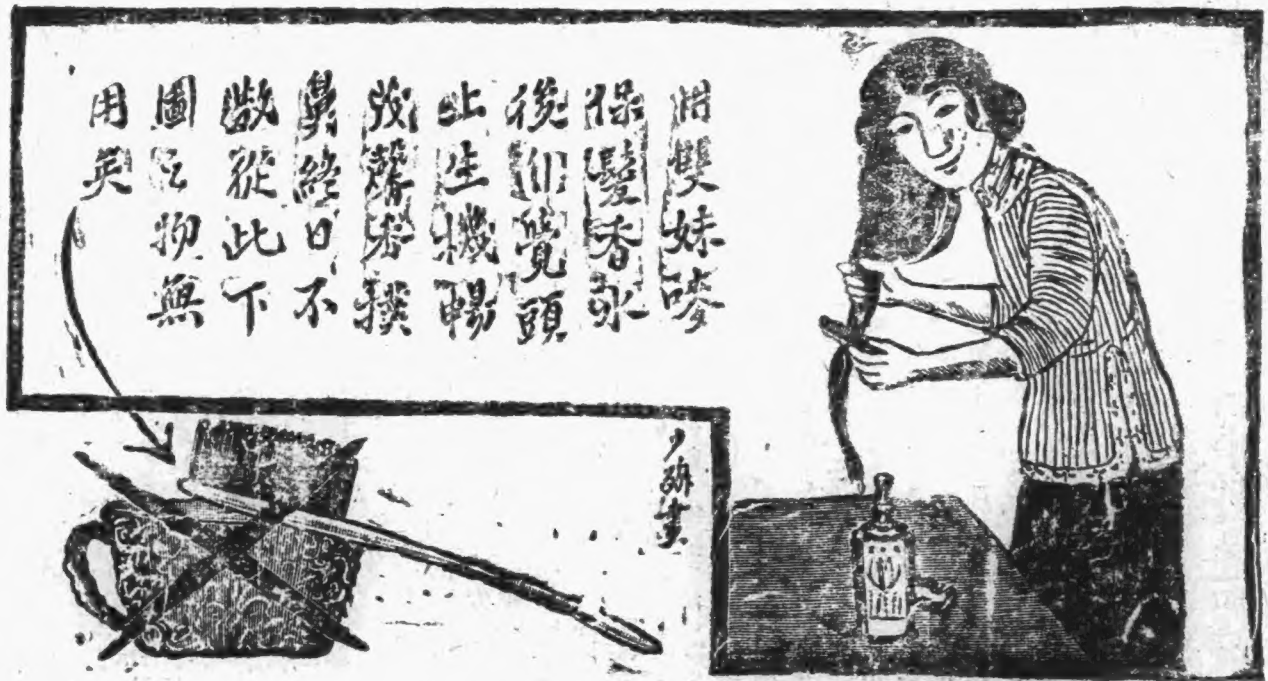 搽雙妹嚜
保髮香水
後則覺頭
上生機暢
茂馨香撲
鼻終日不
散從此下
圖之物無
用矣